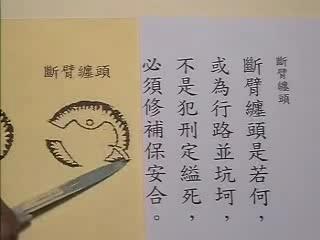 斷臂纏頭
斷臂纏頭
斷臂纏頭是若何，
或為行路並坑坷，
不是犯刑定縊死，
必須修補保安合。